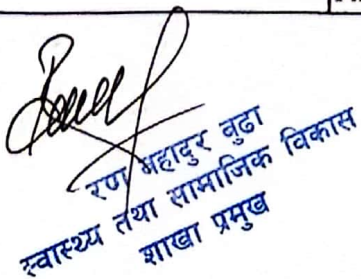 रण बहादुर बुढा
स्वास्थ्य तथा सामाजिक विकास
शाखा प्रमुख